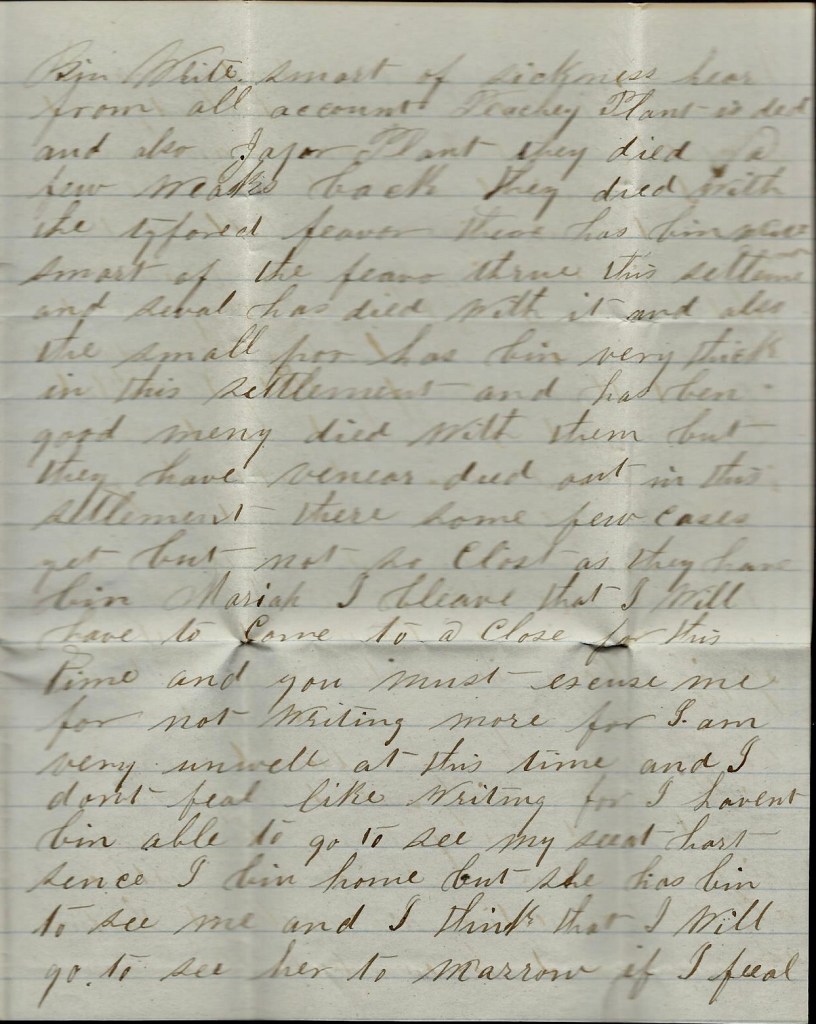 Bin White smart of sickness hear
from all account Peachey Plant is ded
and also Plant they died a
few weaks back they died with
the tyfored feavor there has bin
smart of the feavo thrue this settleme
and seval has died with it and also
the small pox has bin very thick
in this settlement and has ben
good meny died with them but
they have died out in this
settlement there some few cases
yet but not so Clost as they have
bin Mariah I bleave that I Will
have to Come to a Close for this
time and you must excuse me
for not Writing more for I am
very unwell at this time and I
dont feal like Writing for I havent
bin able to go to see my seeat hart
sence I bin home but she has bin
to see me and I think that I Will
go to see her to marrow if I feeal